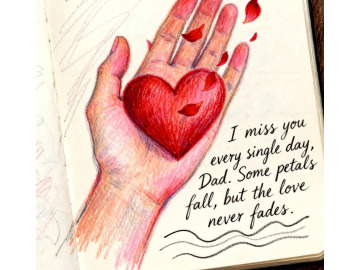 I miss you
every single day,
Dad. Some petals
fall, but the love
never fades.